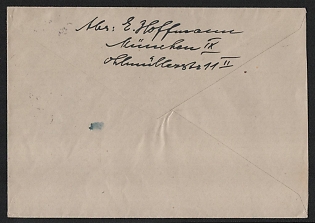 Abs: E. Hoffmann
München IX
Ohlmüllerstr 11 II